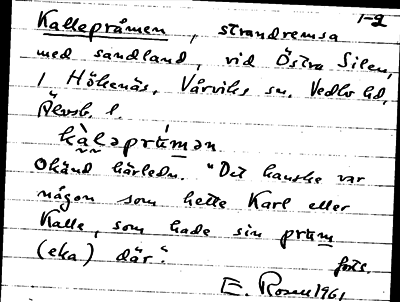 1-2
Kallepråmen, strandremsa
med sandland, vid Östra Silen,
i Hökenäs, Vårviks sn, Vedbo hd,
Älvsb. l.
Okänd härledn. "Det kanske var
någon som hette Karl eller
Kalle, som hade sin pråm
(eka) där".
forts.
E. Rosell 1961